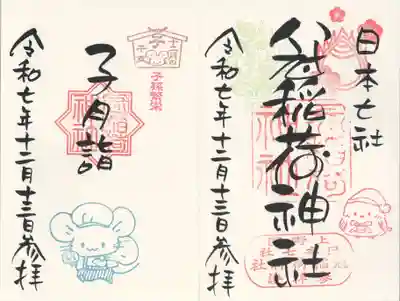 日本七社
冠稲荷神社
令和七年十二月十三日参拝
十二月の
干支
子
子孫繁栄
子月詣
令和七年十二月十三日参拝